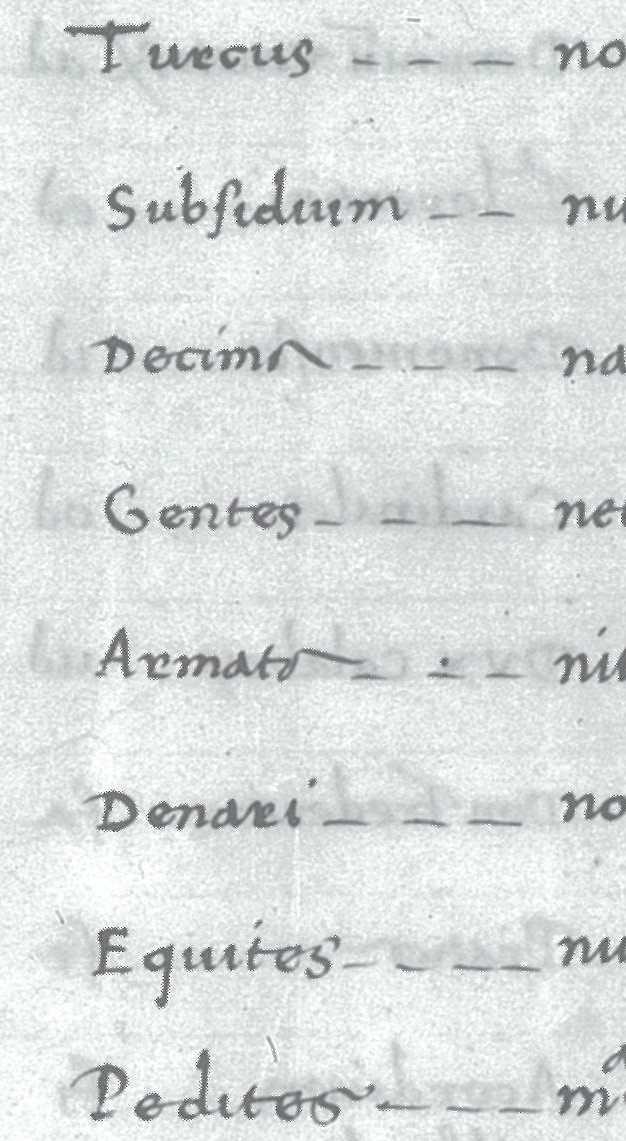 Turcus - - - no
Subsidium - - nu
Decima - - - na
Gentes - - - net
Armata - - - nil
Denari - - - no
Equites - - - nu
Pedites - - - m